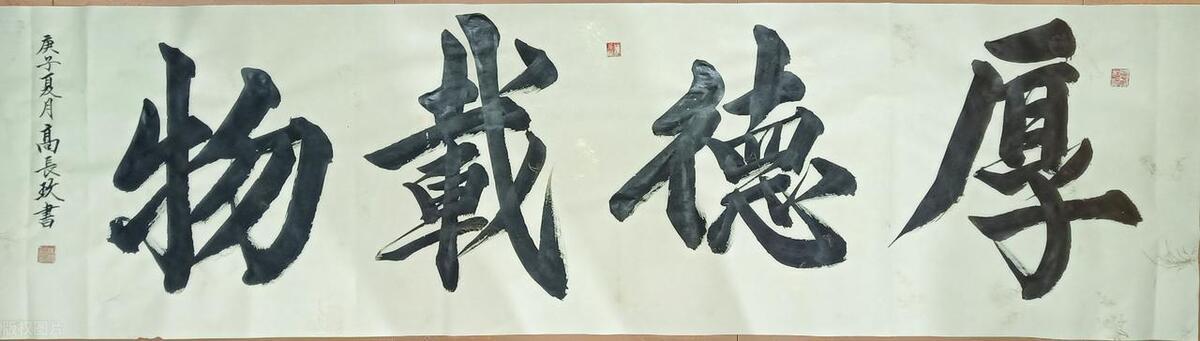 厚德載物
庚子夏月高長玖書
版权图片